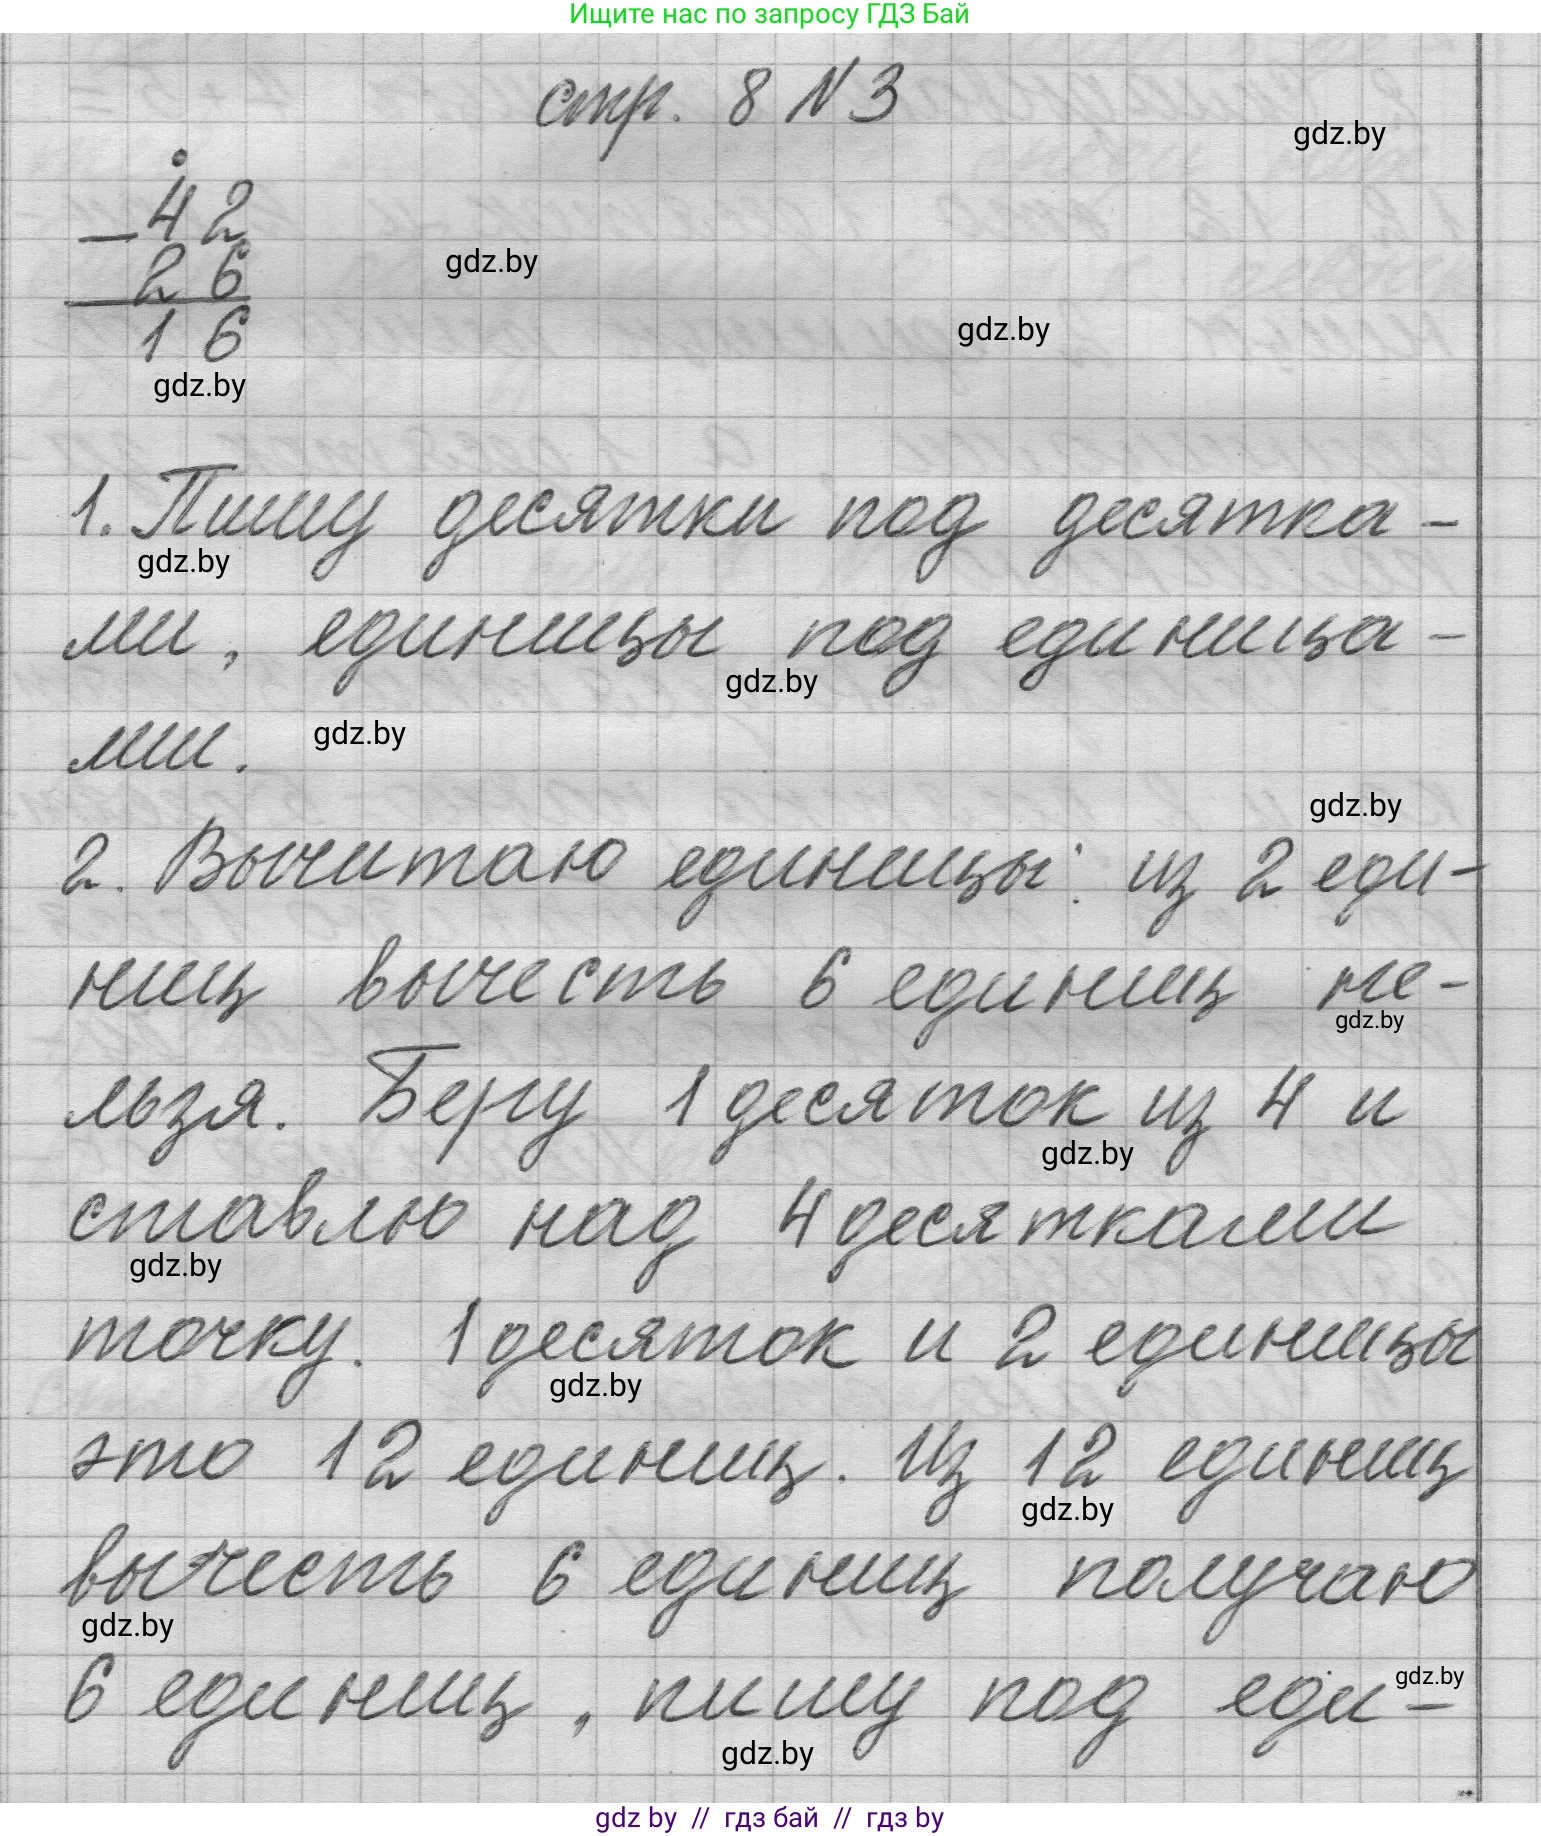 Ищите нас по запросу ГДЗ Бай
стр. 8 №3
gdz.by
42
−
gdz.by
26
gdz.by
16
gdz.by
1. Пишу десятки под десятка-
gdz.by
ми, единицы под единица-
gdz.by
ми.
gdz.by
gdz.by
2. Вычитаю единицы: из 2 еди-
ниц вычесть 6 единиц не-
gdz.by
льзя. Беру 1 десяток из 4 и
gdz.by
ставлю над 4 десятками
gdz.by
точку. 1 десяток и 2 единицы
gdz.by
это 12 единиц. Из 12 единиц
gdz.by
вычесть 6 единиц получаю
gdz.by
6 единиц, пишу под еди-
gdz.by
gdz.by
gdz by // гдз бай // гдз by